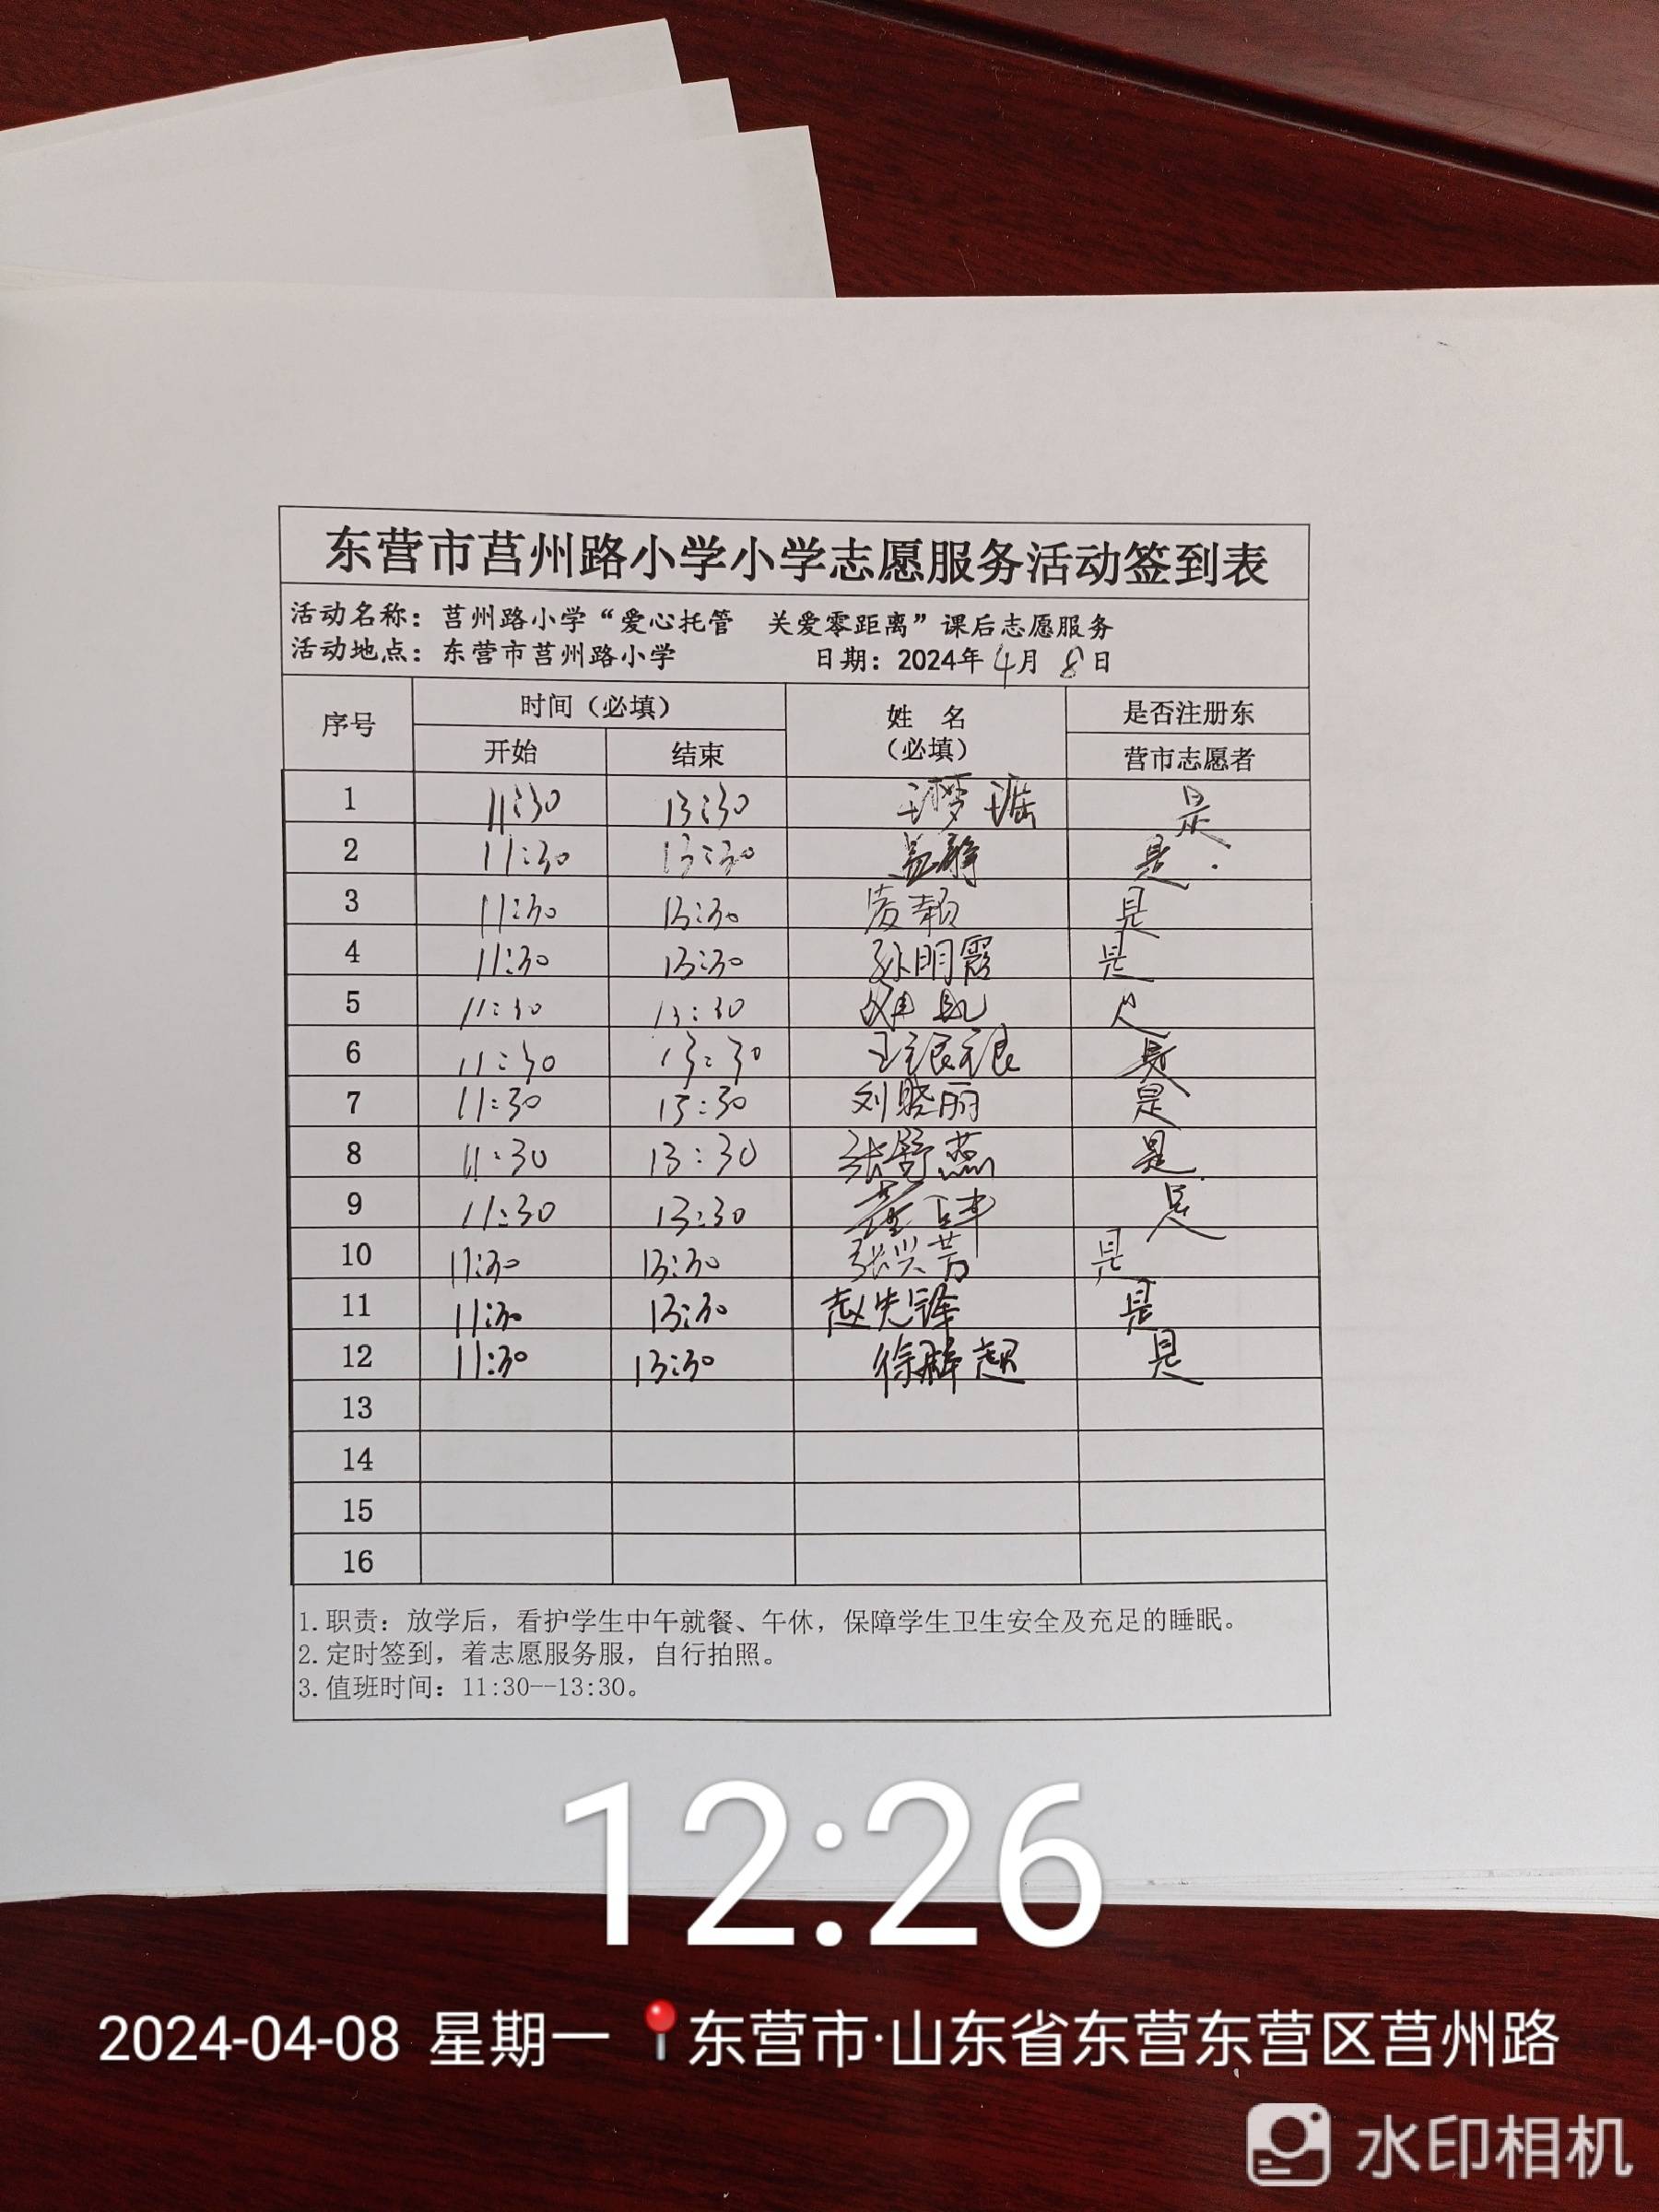 东营市莒州路小学小学志愿服务活动签到表
活动名称：莒州路小学“爱心托管 关爱零距离”课后志愿服务
活动地点：东营市莒州路小学 日期：2024年4月8日
序号 时间（必填） 姓 名 （必填） 是否注册东
开始 结束 营市志愿者
1 11:30 13:30 是
2 11:30 13:30 是.
3 11:30 13:30 是
4 11:30 13:30 孙明霞 是
5 11:30 13:30
6 11:30 13:30 是
7 11:30 13:30 刘晓丽 是
8 11:30 13:30 张舒燕 是
9 11:30 13:30 是
10 11:30 13:30 张兴芳 是
11 11:30 13:30 赵先锋 是
12 11:30 13:30 徐 超 是
13
14
15
16
1.职责：放学后，看护学生中午就餐、午休，保障学生卫生安全及充足的睡眠。
2.定时签到，着志愿服务服，自行拍照。
3.值班时间：11:30--13:30。
12:26
2024-04-08 星期一 东营市·山东省东营东营区莒州路
水印相机